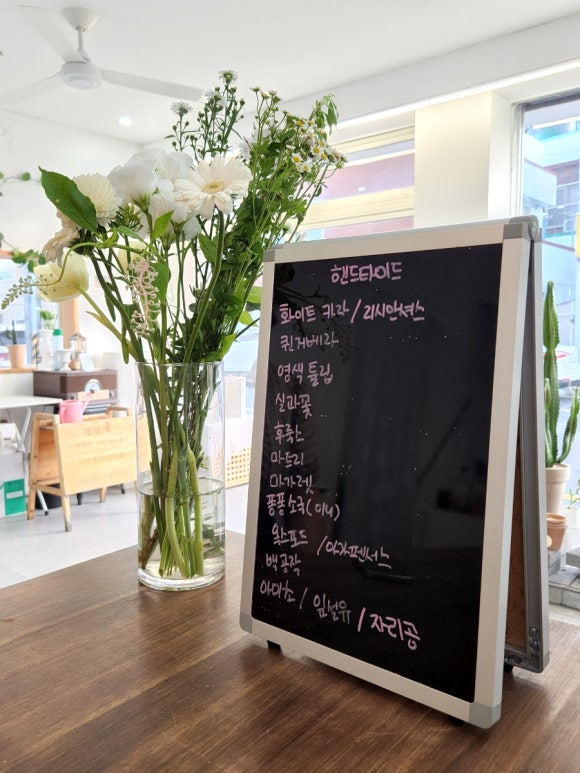 핸드타이드
화이트 카라 / 리시안셔스
퀸거베라
염색 튤립
설과꽃
후룩스
마트리
마가렛
퐁퐁소국(미니)
옥스포드 / 아가펜서스
백공작
아미초 / 잎설유 / 자리공